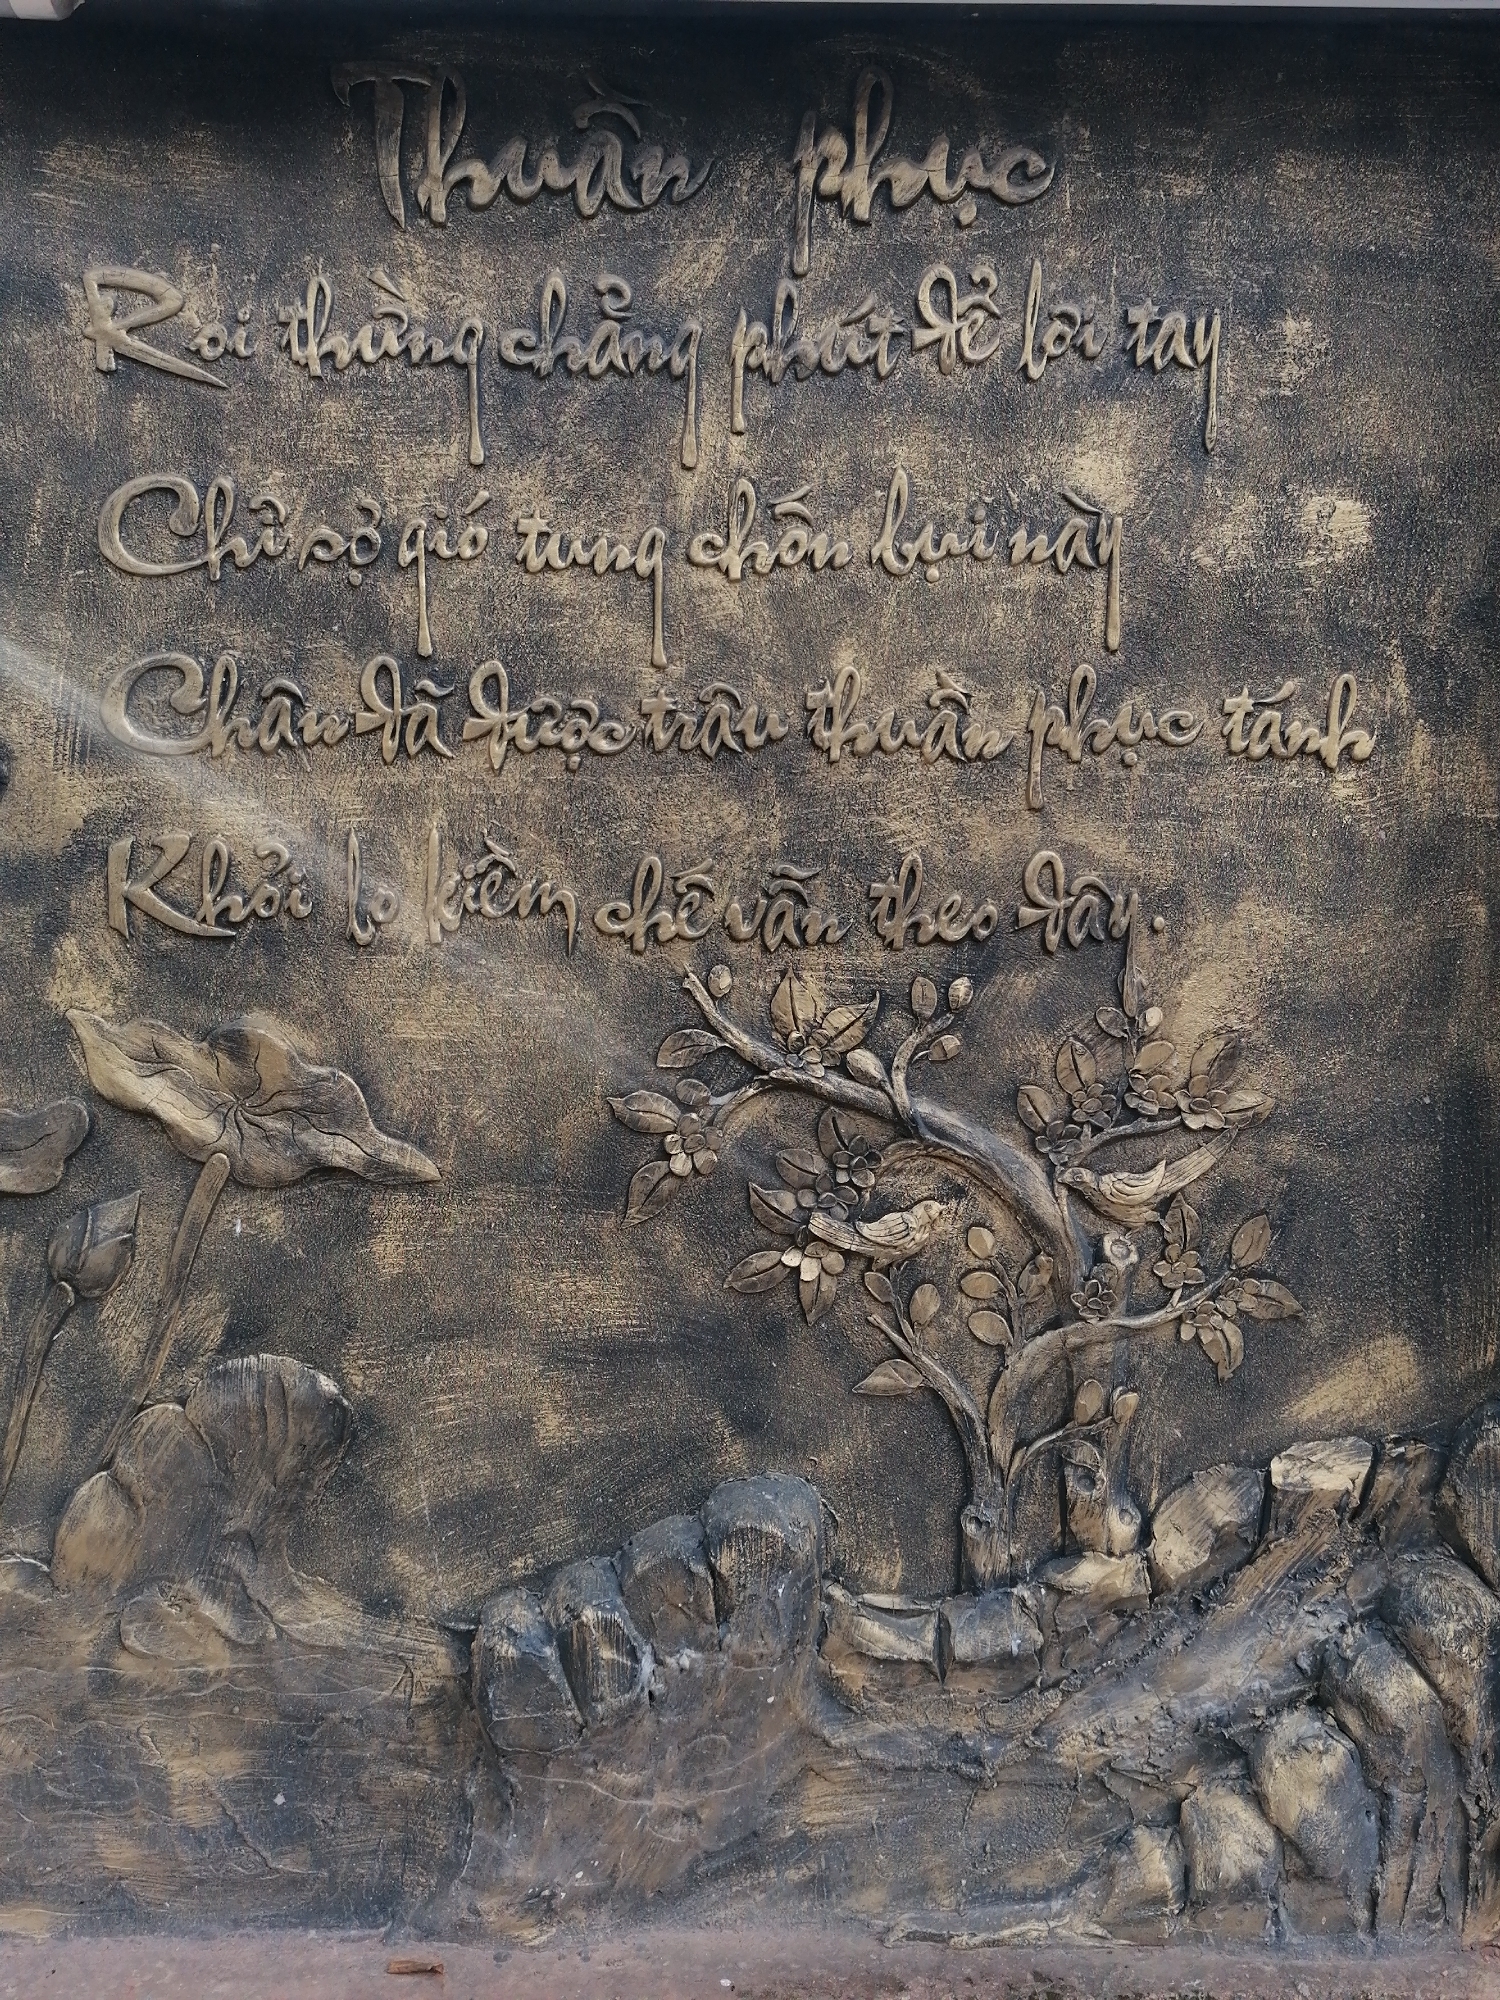 Thuần phục
Roi thừng chẳng phút để lời tay
Chỉ sợ gió tung chốn bụi này
Chăn đã được trâu thuần phục tánh
Khỏi lo kiềm chế vẫn theo đây.